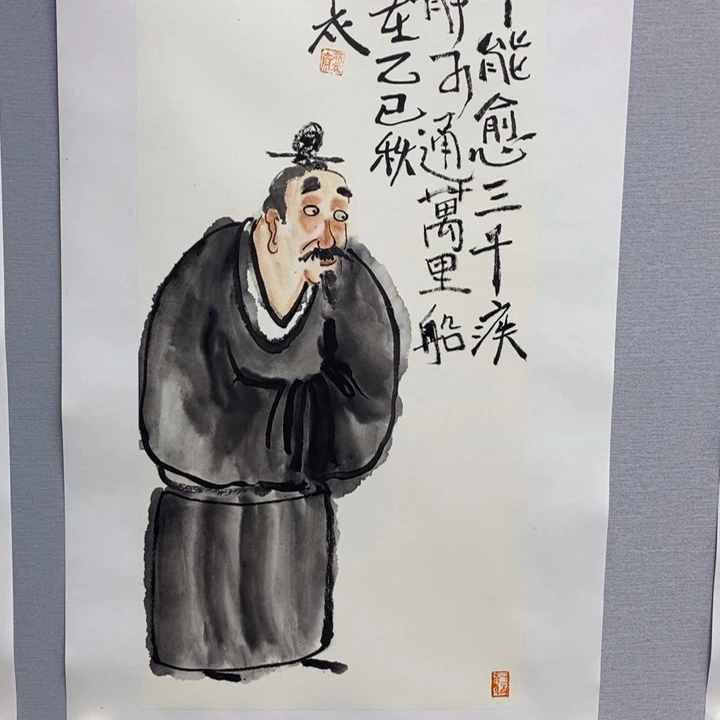 能愈三千疾
可通萬里船
在乙巳秋